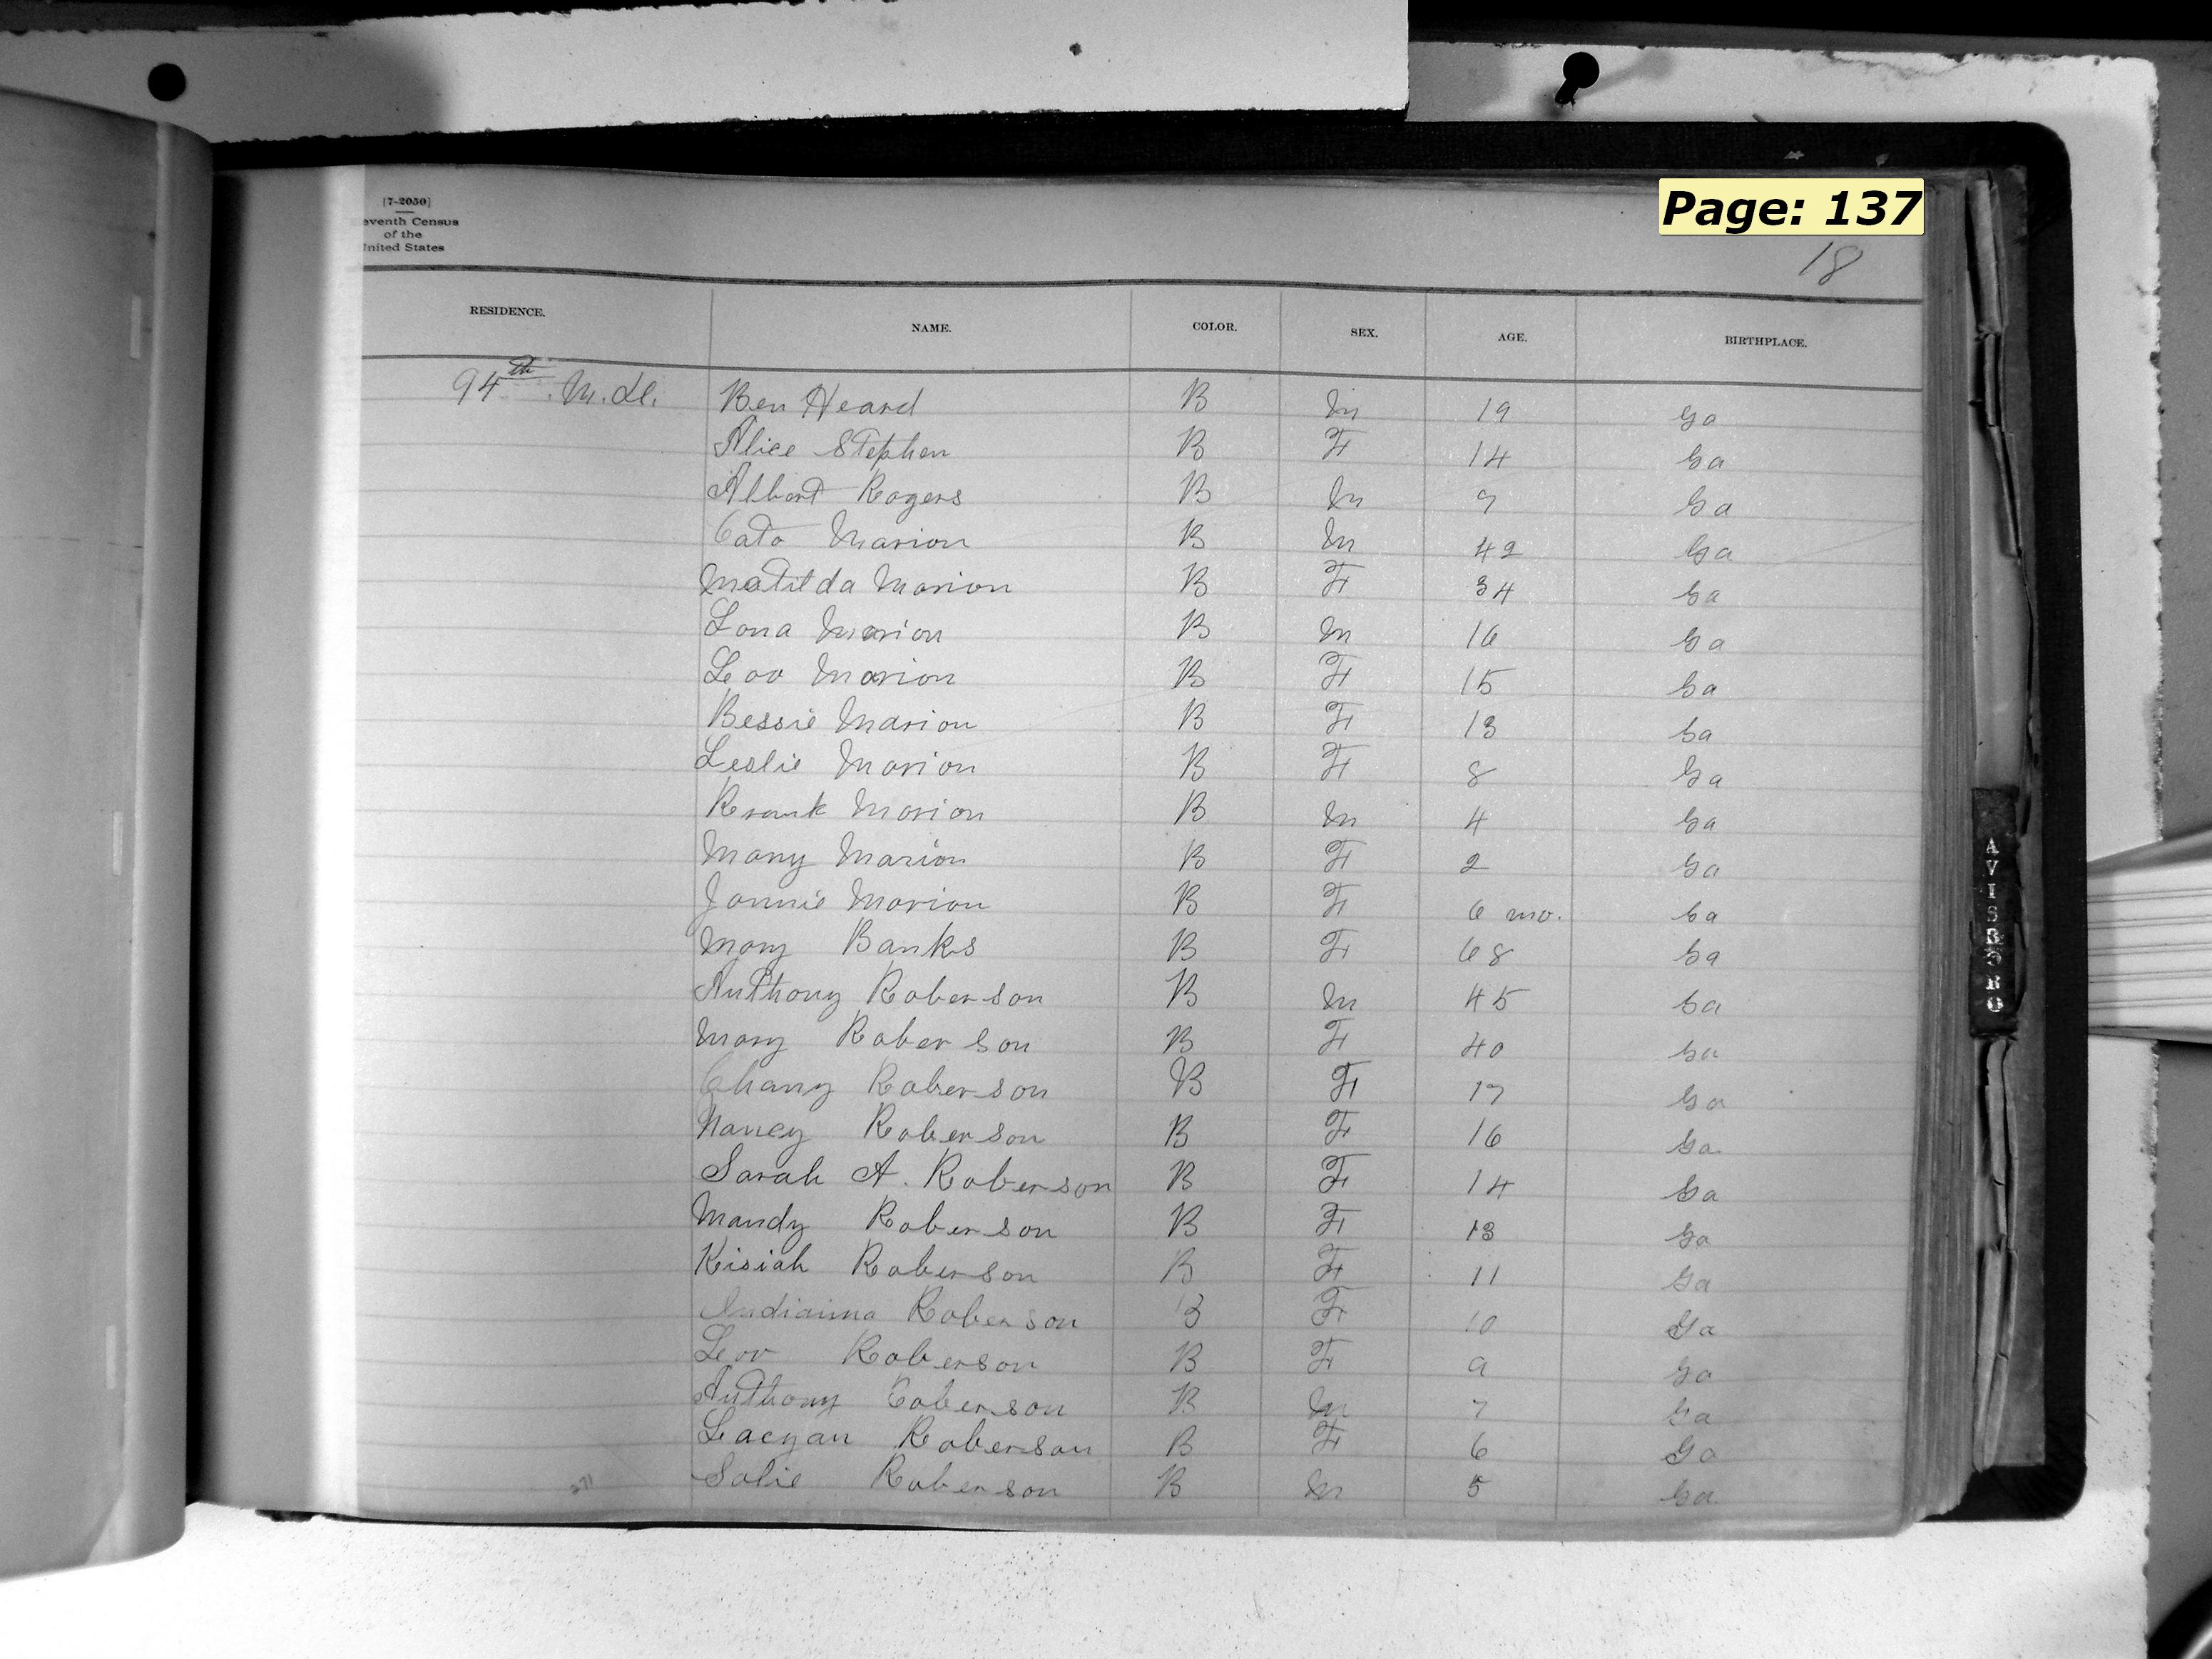 Page: 137
[7-2050]
eventh Census
of the
United States
18
RESIDENCE. NAME. COLOR. SEX. AGE. BIRTHPLACE.
94th M. Ds. Ben Heard B M 19 Ga
Alice Stephen B F 14 Ga
Albert Rogers B M 9 Ga
Cato Marion B M 42 Ga
Matilda Marion B F 34 Ga
Lona Marion B M 16 Ga
Leor Marion B F 15 Ga
Bessie Marion B F 13 Ga
Leslie Marion B F 8 Ga
Marion B M 4 Ga
Mary Marion B F 2 Ga
Jannie Marion B F 6 mo. Ga
Mary Banks B F 68 Ga
Anthony Roberson B M 45 Ga
Mary Roberson B F 40 Ga
Chany Roberson B F 17 Ga
Nancy Roberson B F 16 Ga
Sarah A. Roberson B F 14 Ga
Mandy Roberson B F 13 Ga
Kisiah Roberson B F 11 Ga
Indianna Roberson B F 10 Ga
Leor Roberson B F 9 Ga
Anthony Roberson B M 7 Ga
Lacyan Roberson B F 6 Ga
Solie Roberson B M 5 Ga
271
AVISBORO